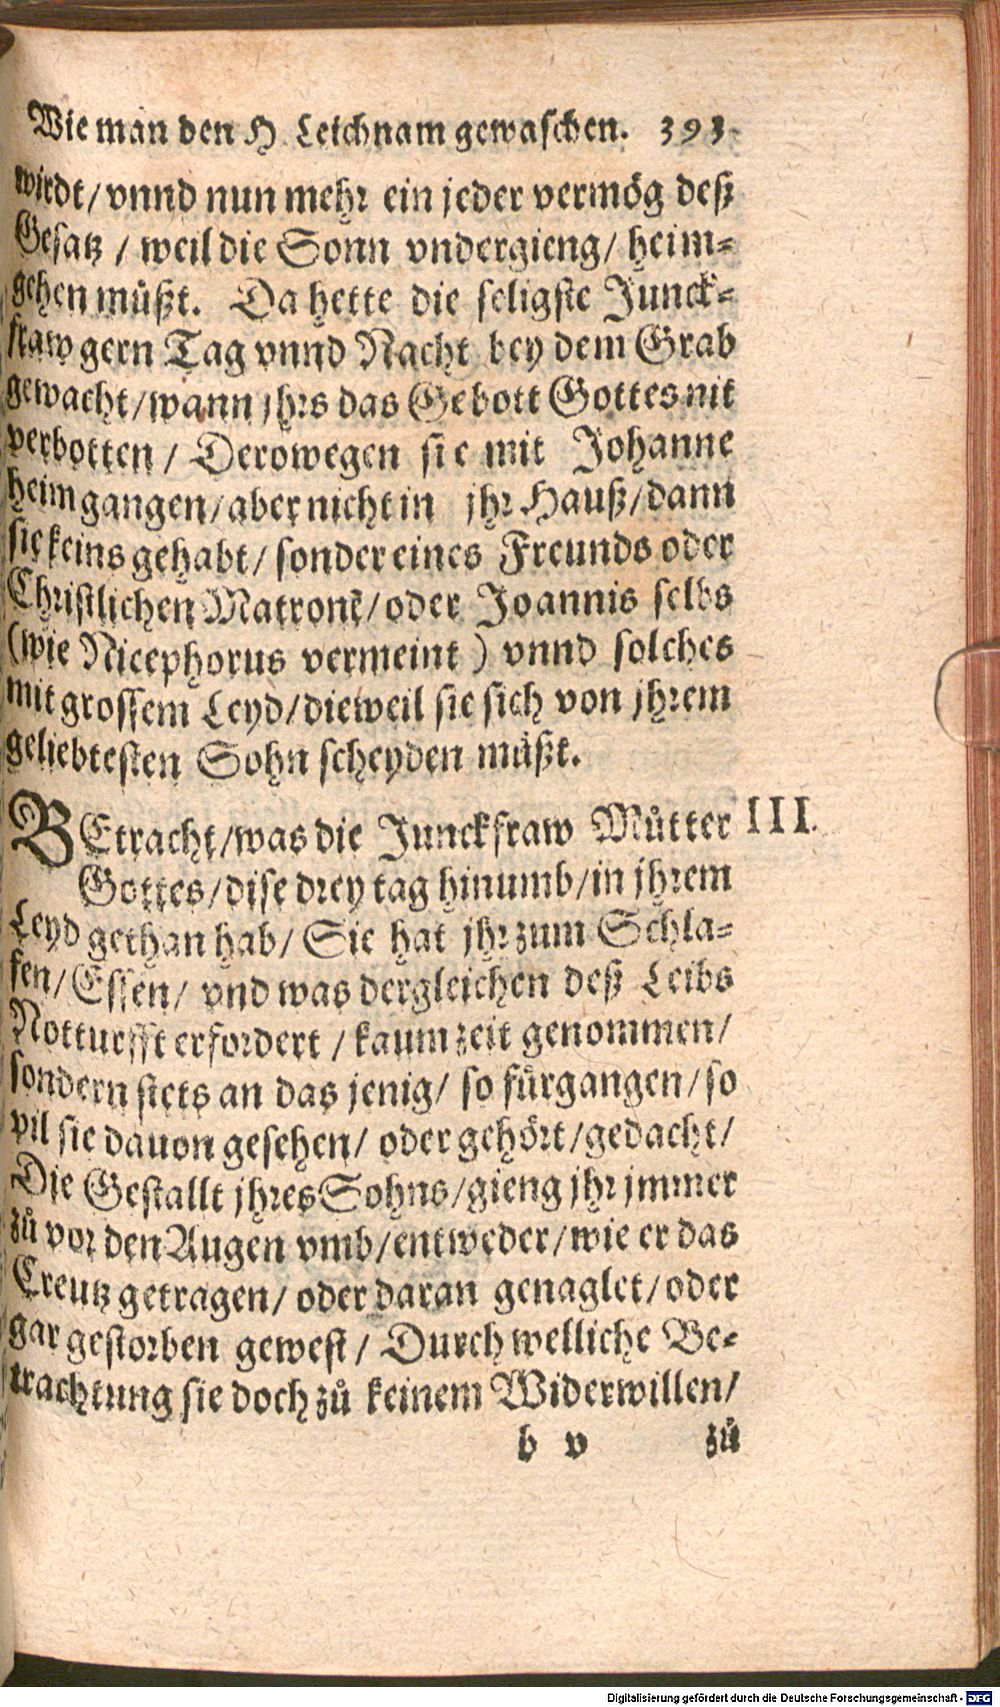 Wie man den H. Leichnam gewaschen. 393
wirdt/ vnnd nun mehr ein jeder vermög deß
Gesatz / weil die Sonn vndergieng/ heim-
gehen müßt. Da hette die seligste Junck-
fraw gern Tag vnnd Nacht bey dem Grab
gewacht/wann jhrs das Gebott Gottes nit
verbotten / Derowegen sie mit Johanne
heim gangen/aber nicht in jhr Hauß/dann
sie keins gehabt/ sonder eines Freunds oder
Christlichen Matronẽ/oder Joannis selbs
(wie Nicephorus vermeint ) vnnd solches
mit grossem Leyd/dieweil sie sich von jhrem
geliebtesten Sohn scheyden müßt.
BEtracht/was die Junckfraw Můtter III.
Gottes/dise drey tag hinumb/in jhrem
Leyd gethan hab/ Sie hat jhr zum Schla-
fen/Essen/ vnd was dergleichen deß Leibs
Notturfft erfordert / kaum zeit genommen/
sondern stets an das jenig/ so fürgangen/so
vil sie dauon gesehen/ oder gehört/gedacht/
Die Gestallt jhres Sohns/gieng jhr jmmer
zů vor den Augen vmb/entweder/wie er das
Creutz getragen/ oder daran genaglet/oder
gar gestorben gewest/ Durch welliche Be-
trachtung sie doch zů keinem Widerwillen/
b v zů
Digitalisierung gefördert durch die Deutsche Forschungsgemeinschaft - DFG